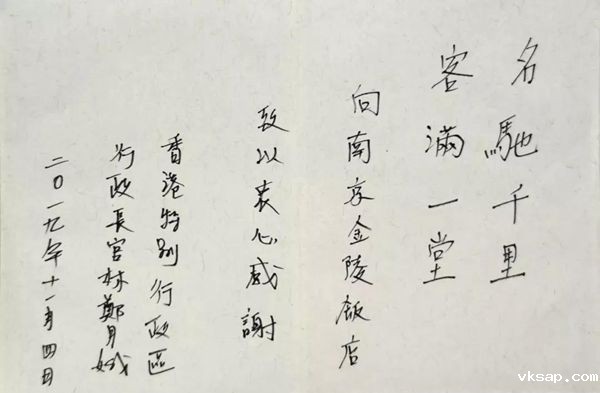 名馳千里
客滿一堂
向南京金陵飯店
致以衷心感謝
香港特別行政區
行政長官林鄭月娥
二〇一九年十一月四日
vksap.com